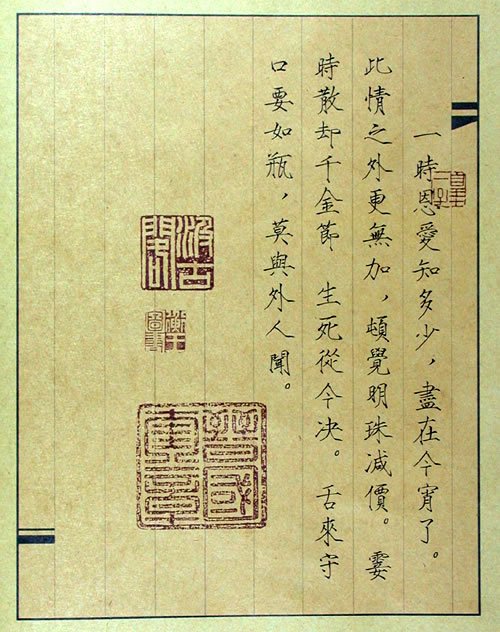 一時恩愛知多少，盡在今宵了。
此情之外更無加，頓覺明珠減價。霎
時散却千金節 生死從今决。 舌來守
口要如瓶，莫與外人聞。